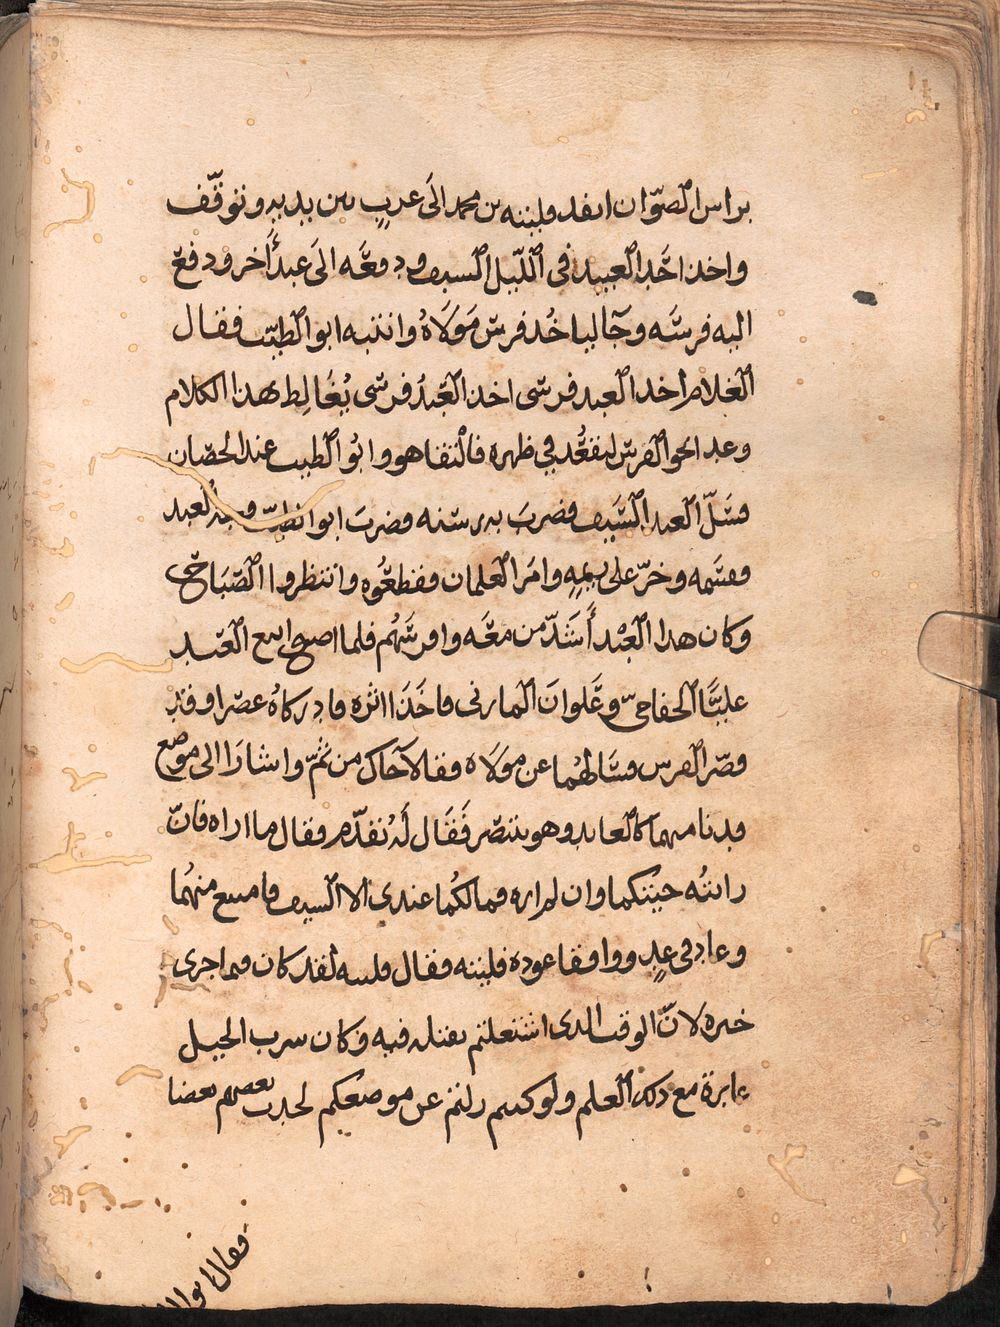 براس الصوّان انفد فليته بن محمد الى عرب بين يديه وتوقّف
واخذ احد العبيد فى الليل السيف ودفعه الى عبد أخر ودفع
اليه فرسه وجا لياخُد فرس مَولَاهُ وانتبه ابو الطيّب فقال
الغلام أخد العبد فرسى اخد العَبدُ فرسى يُغَالِط بهذا الكلام
وعدا نحو الفرس ليقعُد في ظهره فالتقا هو وابُو الطيب عند الحصان
فسَلّ العبد السَّيف فضربَ به رسنه وضربَ ابو الطيّب العبد
فقسَمه وخرّ على وامَر الغلمان فقطعُوه وانتظروا الصّبَاح
وكان هدا العَبْد أَشَدّ من معَه وافرسَهُم فلما اصبح اتبع العبد
عليّا الخفاجى وعَلوانَ المازنى فاخَدَا اثره فادركاهُ عصرا وقد
قصّر الفرس فسَالهُما عن مولَاه فقالا جاك من ثَمّ واشارَا الى موضع
فدنا منهما كالعايد وهو يتبصّر فَقَال لَهُ تقدّم فقال ما اراه فانّ
رايتُه جيتكما وان لم اره فما لكُما عندى الا السيف فامتنع منهُما
وعاد فى غدٍ ووافقا عوده فليته فقال فليته لقد كان فيما جرى
خيره لَانّ الوقت الدى اشتغلتم بقتله فيه وكان سرب الخيل
عابرة مع دلك العلم ولو كنتم زلتم عن موضعكم لحدب بعضهم بعضا
فقال ابو